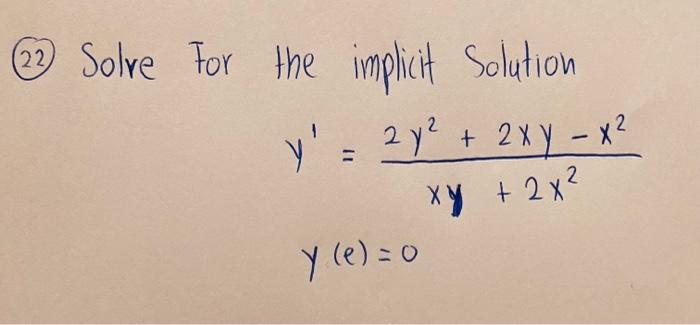 22 Solve For the implicit Solution
y' = (2y² + 2xy - x²) / (xy + 2x²)
y(e) = 0